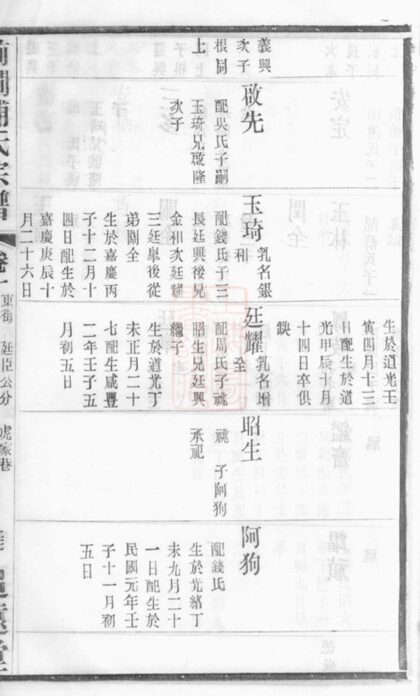 義興
次子
根同
上上
啟先
配吳氏子嗣
玉琦兄啟隆
次子
玉琦
乳名銀和
配錢氏子三
長廷興後兄
金和次廷耀
三廷皐後從
弟關全
生於嘉慶丙
子十二月十
四日配生於
嘉慶庚辰十
月二十六日
生於道光壬
寅四月十三
日配生於道
光甲辰十月
十四日卒俱
缺
廷耀
乳名增全
配周氏子祧
昭生兄廷興
繼子
生於道光丁
未正月二十
七配生咸豐
二年壬子五
月初五日
昭生
祧子阿狗
承祀
阿狗
配錢氏
生於光緒丁
未九月二十
一日配生於
民國元年壬
子十一月初
五日
浦氏宗譜
東街
廷臣公分